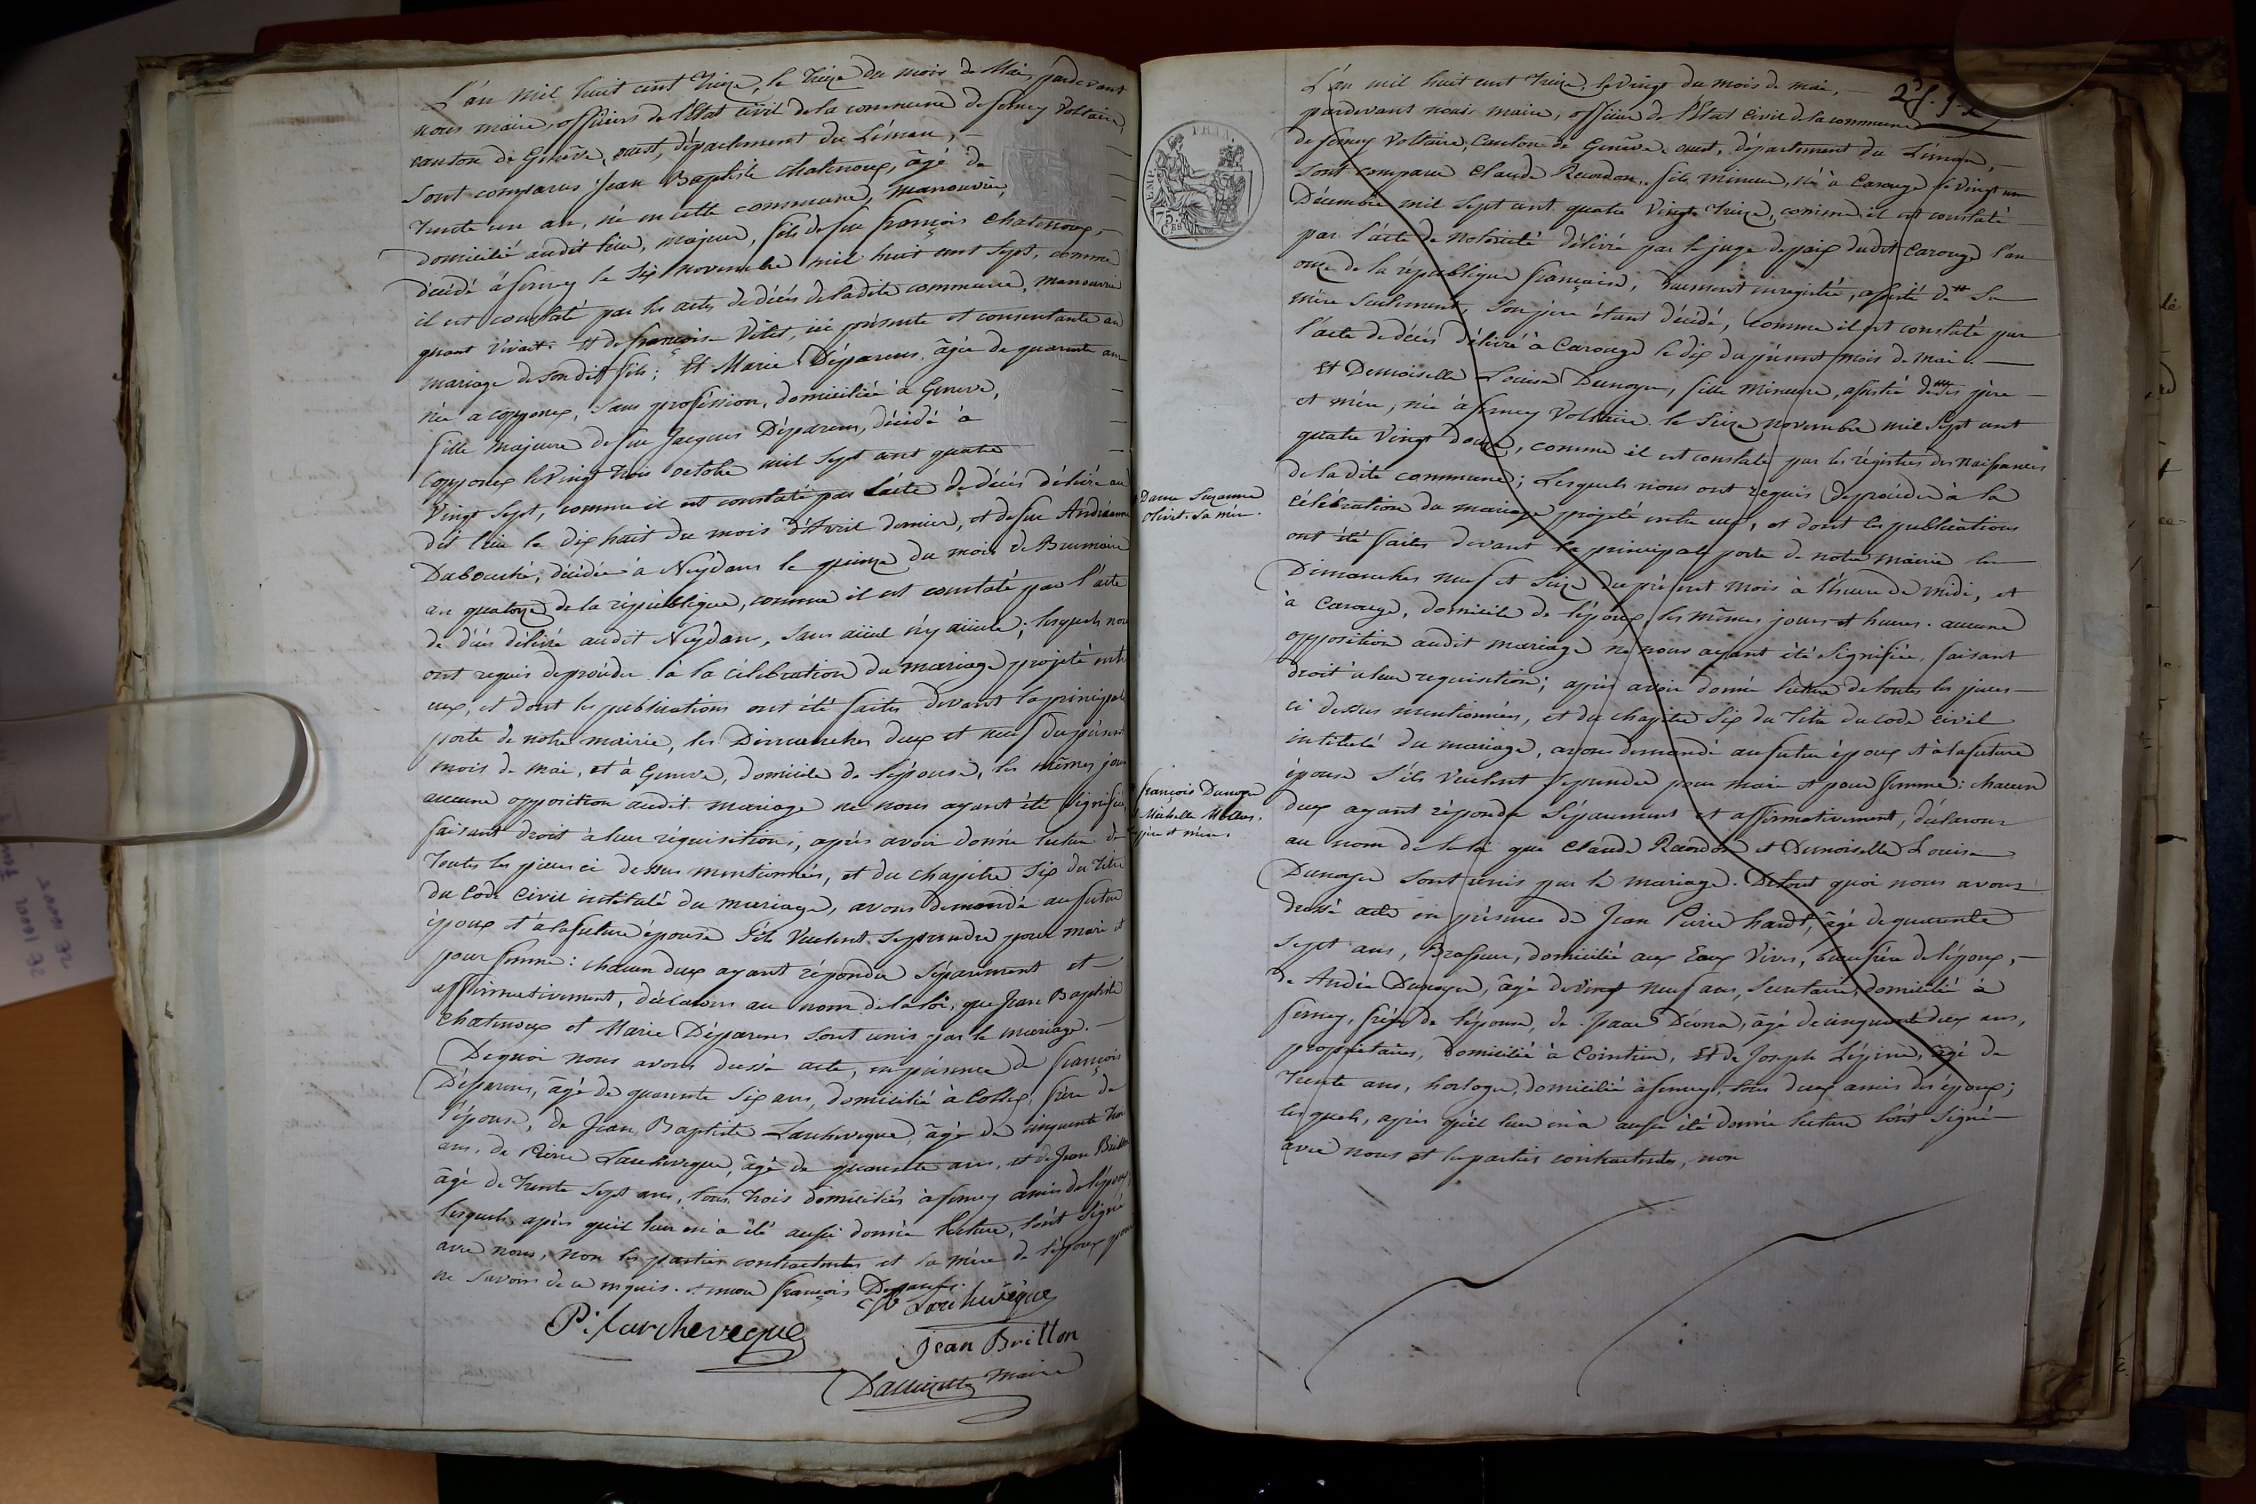 L'an mil huit cent treize, le treize du mois de Mai, pardevant
nous maire, officier de l'état civil de la commune de ferney Voltaire,
canton de Genève ouest, département du Léman, —
sont comparus Jean Baptiste Chatenoux, âgé de
trente un an, né en cette commune, manouvrier,
domicilié audit lieu, majeur, fils de feu françois Chatenoux, —
décédé à ferney le six novembre mil huit cent sept, comme
il est constaté par les actes de décès de ladite commune, manouvrier
quant vivait. Et de françoise Vilet, ici présente et consentante au
mariage de son dit fils; Et Marie Déparens âgée de quarante ans
née a copponex, sans profession, domiciliée à Geneve,
fille majeure de feu Jacques Déparens, décédé à
Copponex le vingt trois octobre mil sept cent quatre
Vingt sept, comme il est constaté par l'acte de décès délivré au
dit lieu le dix huit du mois d'Avril dernier, et de feue Andréanne
Dubouché, décédée à Neydans le quinze du mois de Brumaire
an quatorze de la république, comme il est constaté par l'acte
de décès délivré audit Neydan, sans aïeul n'y aïeule; lesquels nous
ont requis de procéder à la célébration du mariage projeté entr
eux, et dont les publications ont été faites devant la principale
porte de notre mairie, les Dimanches deux et neuf du présent
mois de mai, et à Geneve, domicile de l'épouse, les mêmes jours
aucune opposition audit mariage ne nous ayant été signifiée,
faisant droit à leur réquisition, après avoir donné lecture de
toutes les pièces ci dessus mentionnées, et du chapitre six du titre
du Code Civil intitulé du mariage, avons demandé au futur
époux et à la future épouse s'ils veulent se prendre pour mari et
pour femme: chacun d'eux ayant répondu séparément et —
affirmativement, déclarons au nom de la loi, que Jean Baptiste
Chatenoux et Marie Déparens sont unis par le mariage. —
De quoi nous avons dressé acte, en présence de françois
Déparens, âgé de quarante six ans, domicilié à Collex, frère de
l'épouse, de Jean Baptiste Larchevêque, âgé de cinquante trois
ans, de Pierre Larchevêque, âgé de quarante ans, et de Jean Brillon
âgé de trente sept ans, tous trois domiciliés à ferney amis de l'époux,
lesquels, après qu'il leur en a été aussi donné lecture, l'ont signé
avec nous, non les parties contractantes et la mère de l'époux pour
ne savoir de ce enquis. françois
Larchevêque
P. Larcheveque
Jean Brillon
maire
2
L'an mil huit cent treize, le vingt du mois de mai, —
pardevant nous maire, officier de l'état civil de la commune
de ferney Voltaire, Canton de Genève ouest, département du Léman, —
EMP. FRAN.
75. CES
sont comparus Claude Reordon, fils mineur, né à Carouge le Vingt un
Décembre mil sept cent quatre Vingt treize, comme il est constaté
par l'acte de notoriété délivré par le juge de paix dudit Carouge l'an
onze de la république française, duement enregistré, assisté de sa
mère seulement, son père étant décédé, comme il est constaté par
l'acte de décès délivré à Carouge le dix du présent mois de mai. —
Et Demoiselle Louise Dunoyer, fille mineure, assistée de ses père —
et mère, née à ferney Voltaire le seize novembre mil sept cent
quatre Vingt douze, comme il est constaté par les régistres des naissances
de ladite commune; Lesquels nous ont requis de procéder à la
Dame Suzanne
Olivet sa mère.
célébration du mariage projeté entre eux, et dont les publications
ont été faites devant la principale porte de notre mairie les
Dimanches neuf et seize du présent mois à l'heure de midi, et
à Carouge, domicile de l'époux, les mêmes jours et heures. aucune
opposition audit mariage ne nous ayant été signifiée, faisant
droit à leur requisition; après avoir donné lecture de toutes les pièces —
ci dessus mentionnées, et du chapitre six du titre du code civil
intitulé du mariage, avons demandé au futur époux et à la future
épouse s'ils veulent se prendre pour mari et pour femme: chacun
françois Dunoyer
Michelle
père et mère.
d'eux ayant répondu séparément et affirmativement, déclarons
au nom de la loi que Claude Reordon et Demoiselle Louise
Dunoyer sont unis par le mariage. De tout quoi nous avons
dressé acte en présence de Jean Pierre hardt, âgé de quarante
sept ans, Brasseur, domicilié aux Eaux Vives, beau frère de l'époux, —
de Andée Dunoyer, âgé de vingt neuf ans, Secretaire, domicilié à
ferney, frère de l'épouse, de Isaac Déona, âgé de cinquante deux ans,
propriétaire, domicilié à Cointrin, Et de Joseph Lépine, âgé de
trente ans, horloger, domicilié à ferney, tous deux amis des époux;
lesquels, après qu'il leur en a aussi été donné lecture l'ont signé
avec nous et les parties contractantes, non